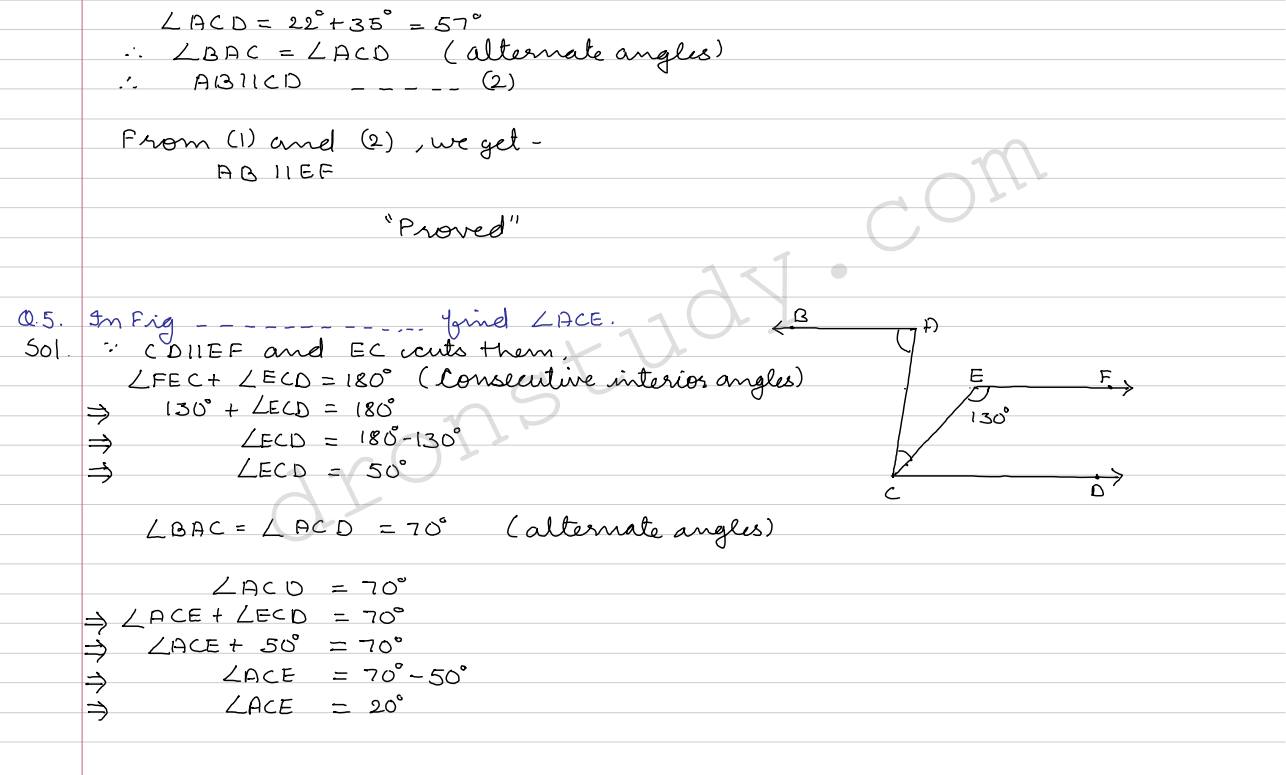 ∠ACD = 22° + 35° = 57°
∴ ∠BAC = ∠ACD (alternate angles)
∴ AB||CD ----- (2)
From (1) and (2), we get -
AB ||EF
"Proved"
Q.5. In Fig -------------... find ∠ACE.
Sol. ∵ CD||EF and EC cuts them,
∠FEC + ∠ECD = 180° (Consecutive interior angles)
⇒ 130° + ∠ECD = 180°
⇒ ∠ECD = 180°-130°
⇒ ∠ECD = 50°
∠BAC = ∠ACD = 70° (alternate angles)
∠ACD = 70°
⇒ ∠ACE + ∠ECD = 70°
⇒ ∠ACE + 50° = 70°
⇒ ∠ACE = 70° - 50°
⇒ ∠ACE = 20°
B A
E F
130°
C D
dronstudy.com